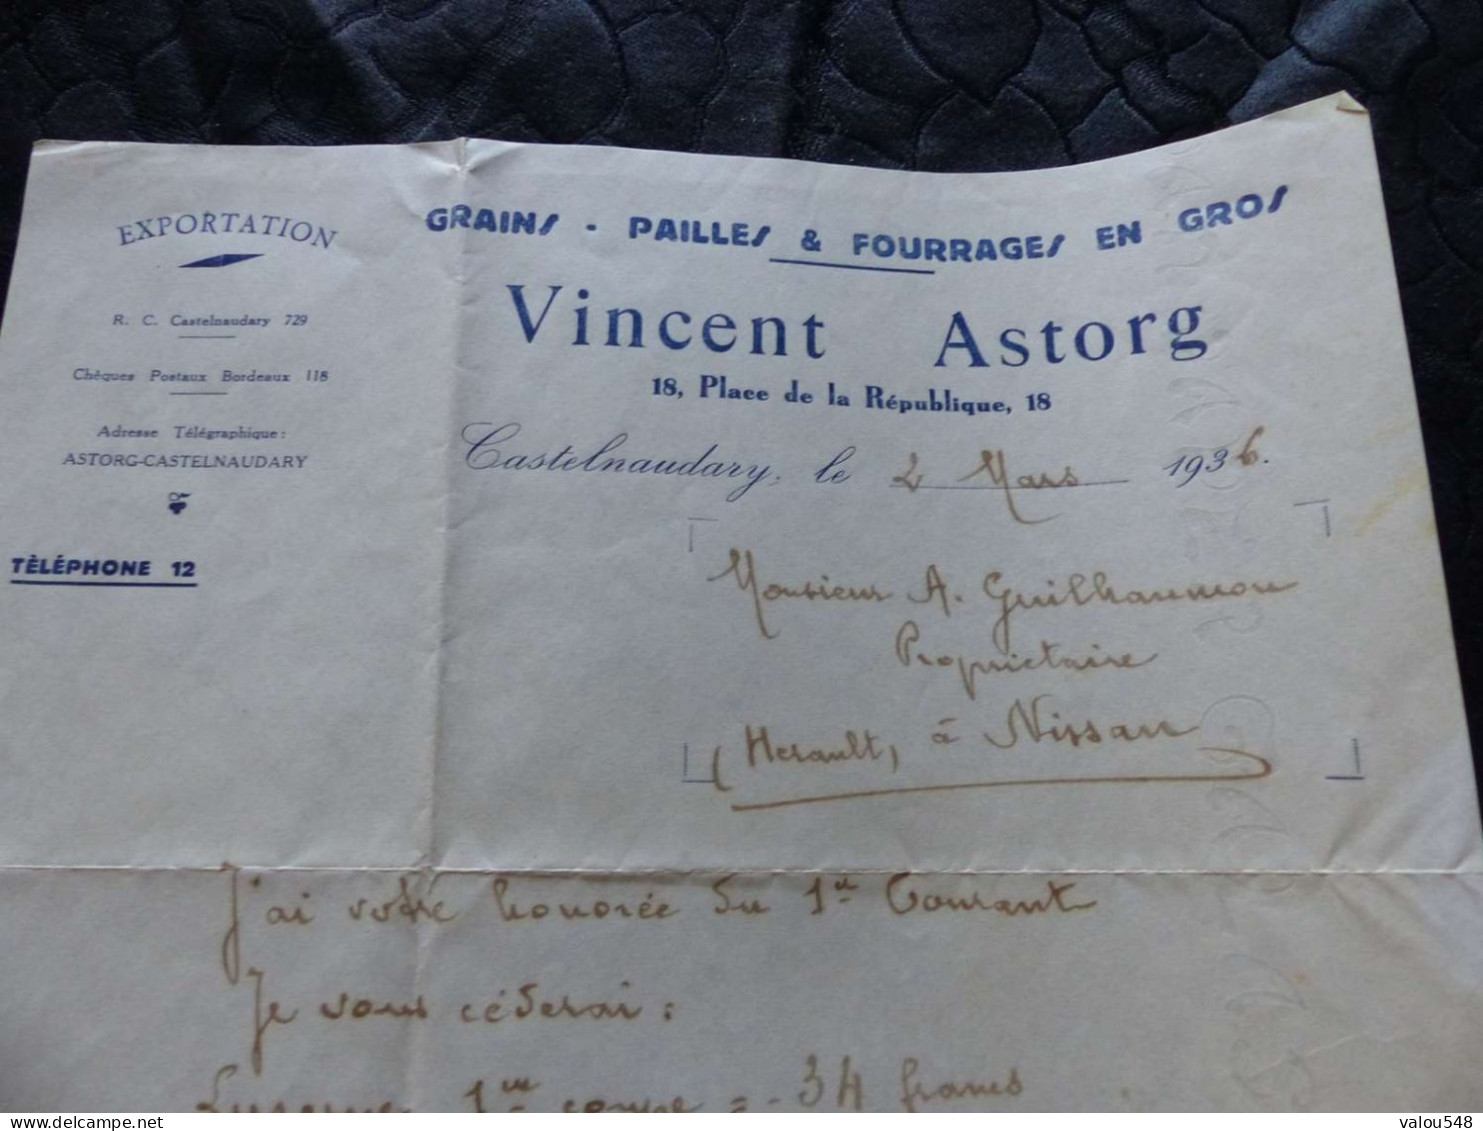 EXPORTATION
R. C. Castelnaudary 729
Chèques Postaux Bordeaux 118
Adresse Télégraphique :
ASTORG-CASTELNAUDARY
TÈLÉPHONE 12
GRAINS - PAILLES & FOURRAGES EN GROS
Vincent Astorg
18, Place de la République, 18
Castelnaudary, le 2 Mars 1936.
Monsieur A. Guilhaumou
Propriétaire
(Herault, à Nissan
J'ai votre honorée du 1er Courant
Je vous céderai :
Luzerne 1ere coupe = 34 francs
delcampe.net
valou548